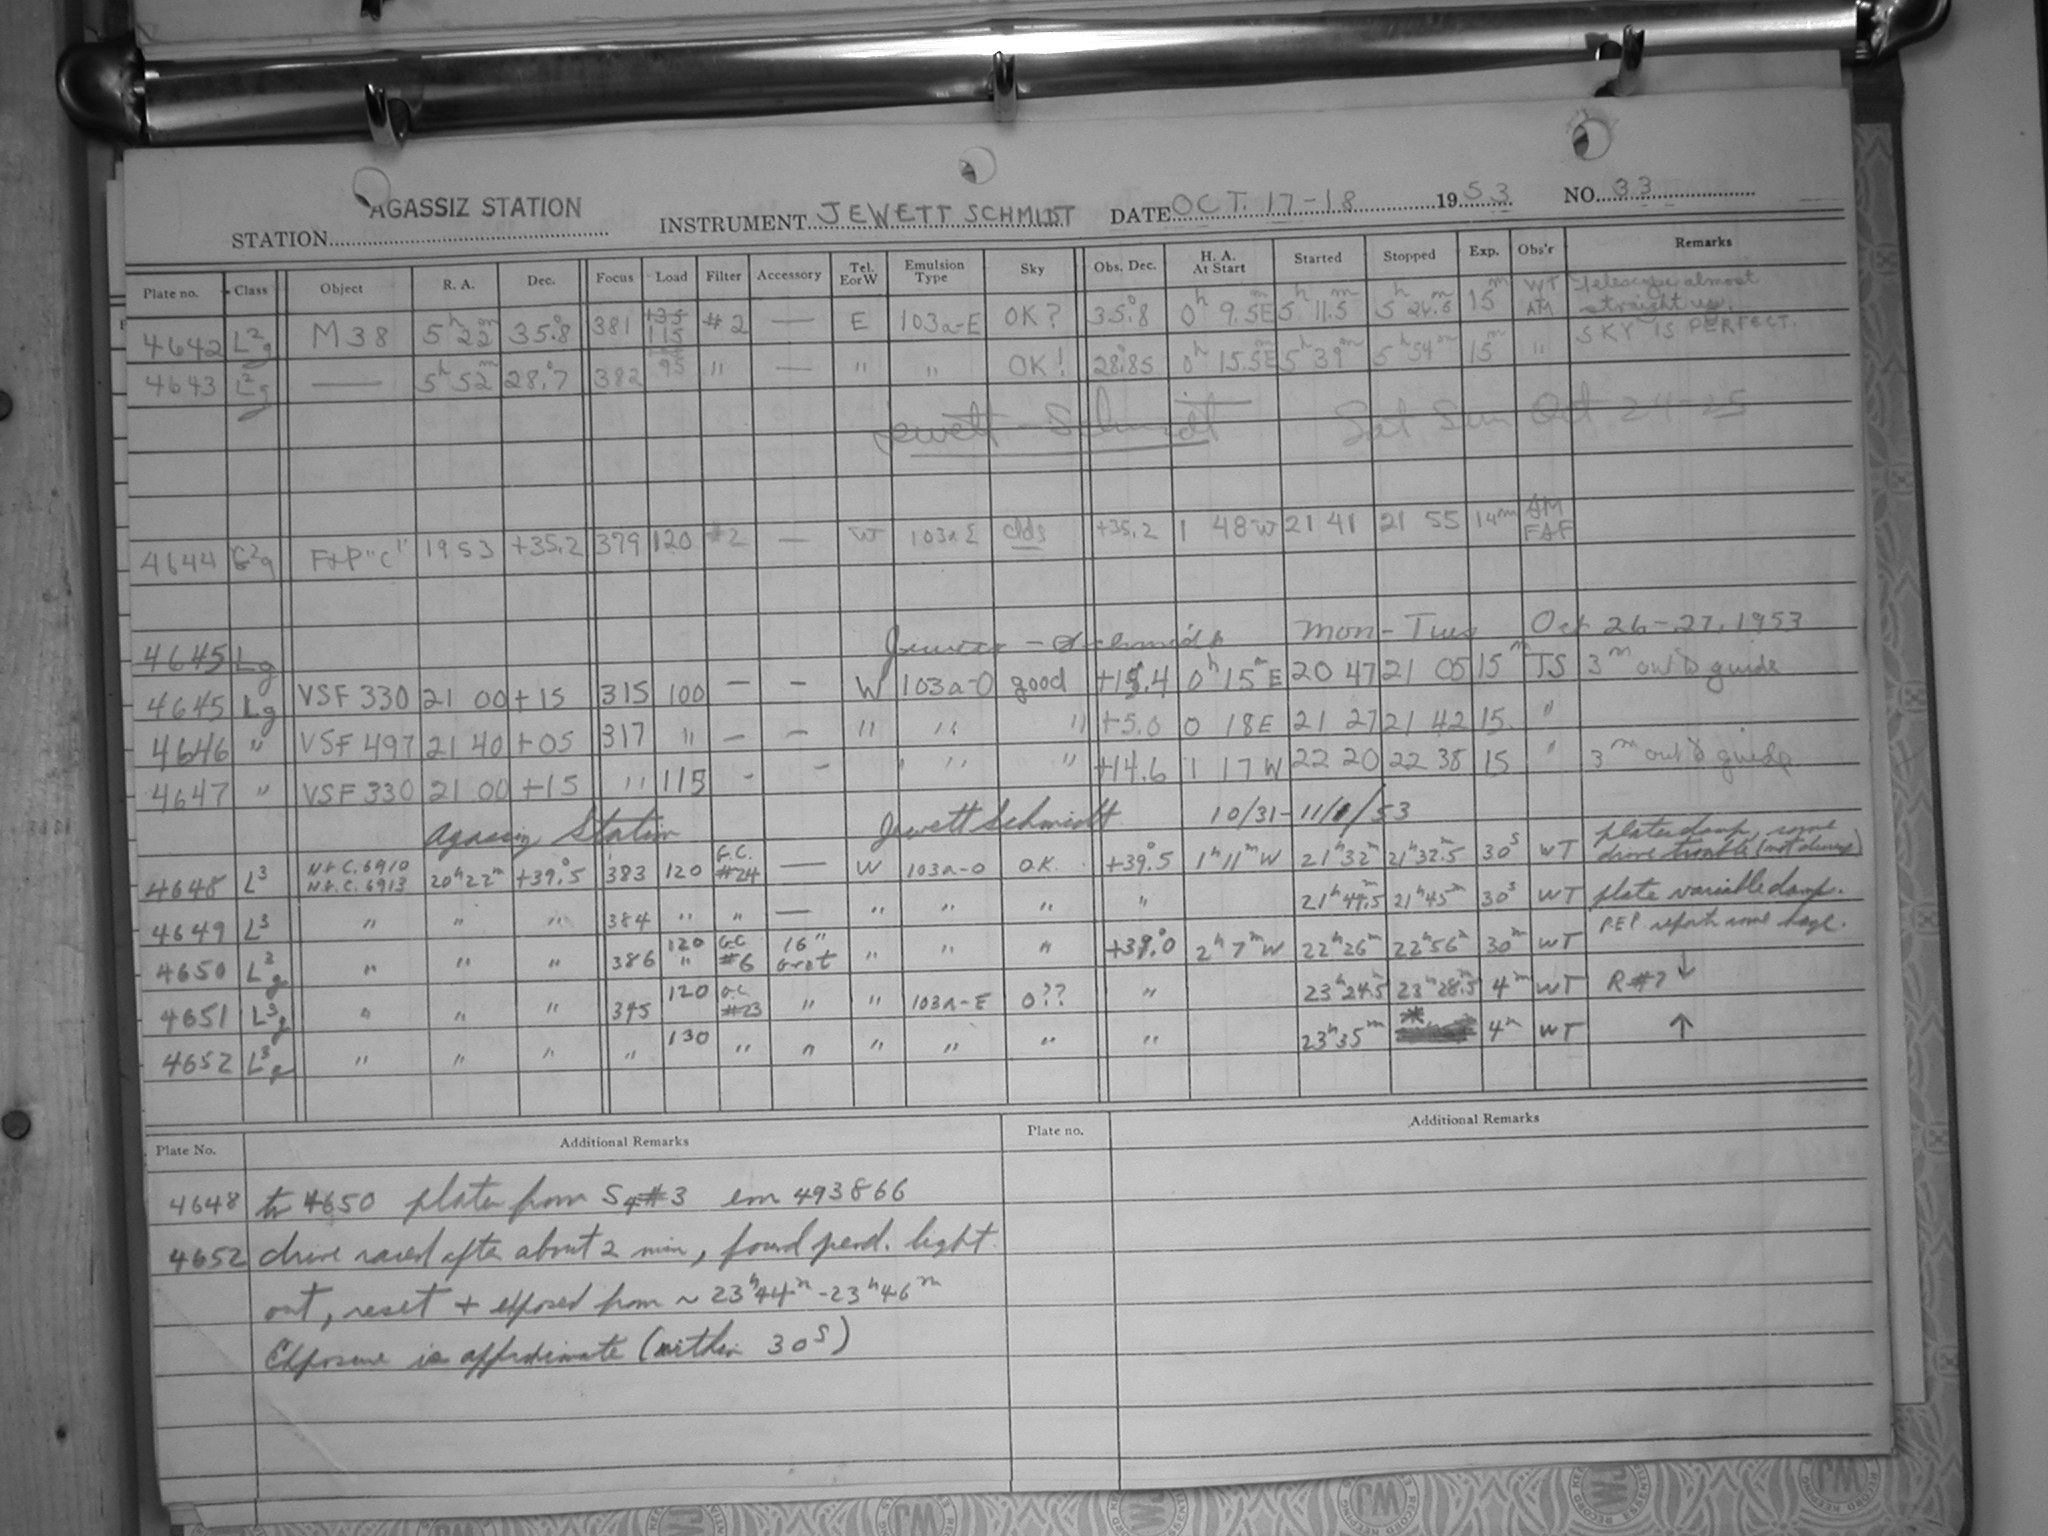 AGASSIZ STATION
STATION INSTRUMENT JEWETT SCHMIDT DATE OCT. 17-18 1953 NO. 33
Plate no. Class Object R. A. Dec. Focus Load Filter Accessory Tel. E or W Emulsion Type Sky Obs. Dec. H. A. At Start Started Stopped Exp. Obs'r Remarks
4642 L²g M 38 5h 22m 35°.8 381 135 115 #2 — E 103a-E OK? 35°.8 0h 9.5E 5h 11.5m 5h 26.6m 15m WT AM Telescope almost straight up.
4643 L²g — 5h 52m 28°.7 382 95 " — " " OK! 28°.85 0h 15.5E 5h 39m 5h 54m 15m " SKY IS PERFECT.
Jewett - Schmidt Sat Sun Oct 24-25
4644 L²g F+P "C" 1953 +35.2 379 120 #2 — W 103a E clds +35.2 1 48W 21 41 21 55 14m AM FAF
4645 Lg Jewett - Schmidt Mon - Tues Oct 26-27, 1953
4645 Lg VSF 330 21 00 +15 315 100 — — W 103a-O good +15.4 0h 15m E 20 47 21 05 15m JS 3m out to guide
4646 " VSF 497 21 40 +05 317 " — — " " " +5.0 0 18E 21 27 21 42 15. "
4647 " VSF 330 21 00 +15 " 115 - - " " " +14.6 1 17W 22 20 22 38 15 " 3m out to guide
Agassiz Station Jewett Schmidt 10/31-11/1/53
4648 L³ N.G.C. 6910 N.G.C. 6913 20h22m +39°.5 383 120 G.C. #24 — W 103a-O OK. +39°.5 1h11mW 21h32m 21h32.5 30s WT plate damp, some drive trouble
4649 L³ " " " 384 " " — " " " " 21h44.5m 21h45m 30s WT plate variable damp.
4650 L³g " " " 386 120 " G.C. #6 16" Grat " " " +39°.0 2h 7mW 22h26m 22h56m 30m WT P.E.P. reports some haze.
4651 L³g " " " 395 120 G.C. #23 " " 103a-E O?? " 23h24.5m 23h28.5m 4m WT R#7 ↓
4652 L³g " " " " 130 " " " " " " 23h35m * 4m WT ↑
Plate No. Additional Remarks Plate no. Additional Remarks
4648 to 4650 plates from S4#3 em 493866
4652 drive raced after about 2 min, found pend. light
out, reset + exposed from ~ 23h44m - 23h46m
Exposure is approximate (within 30s)